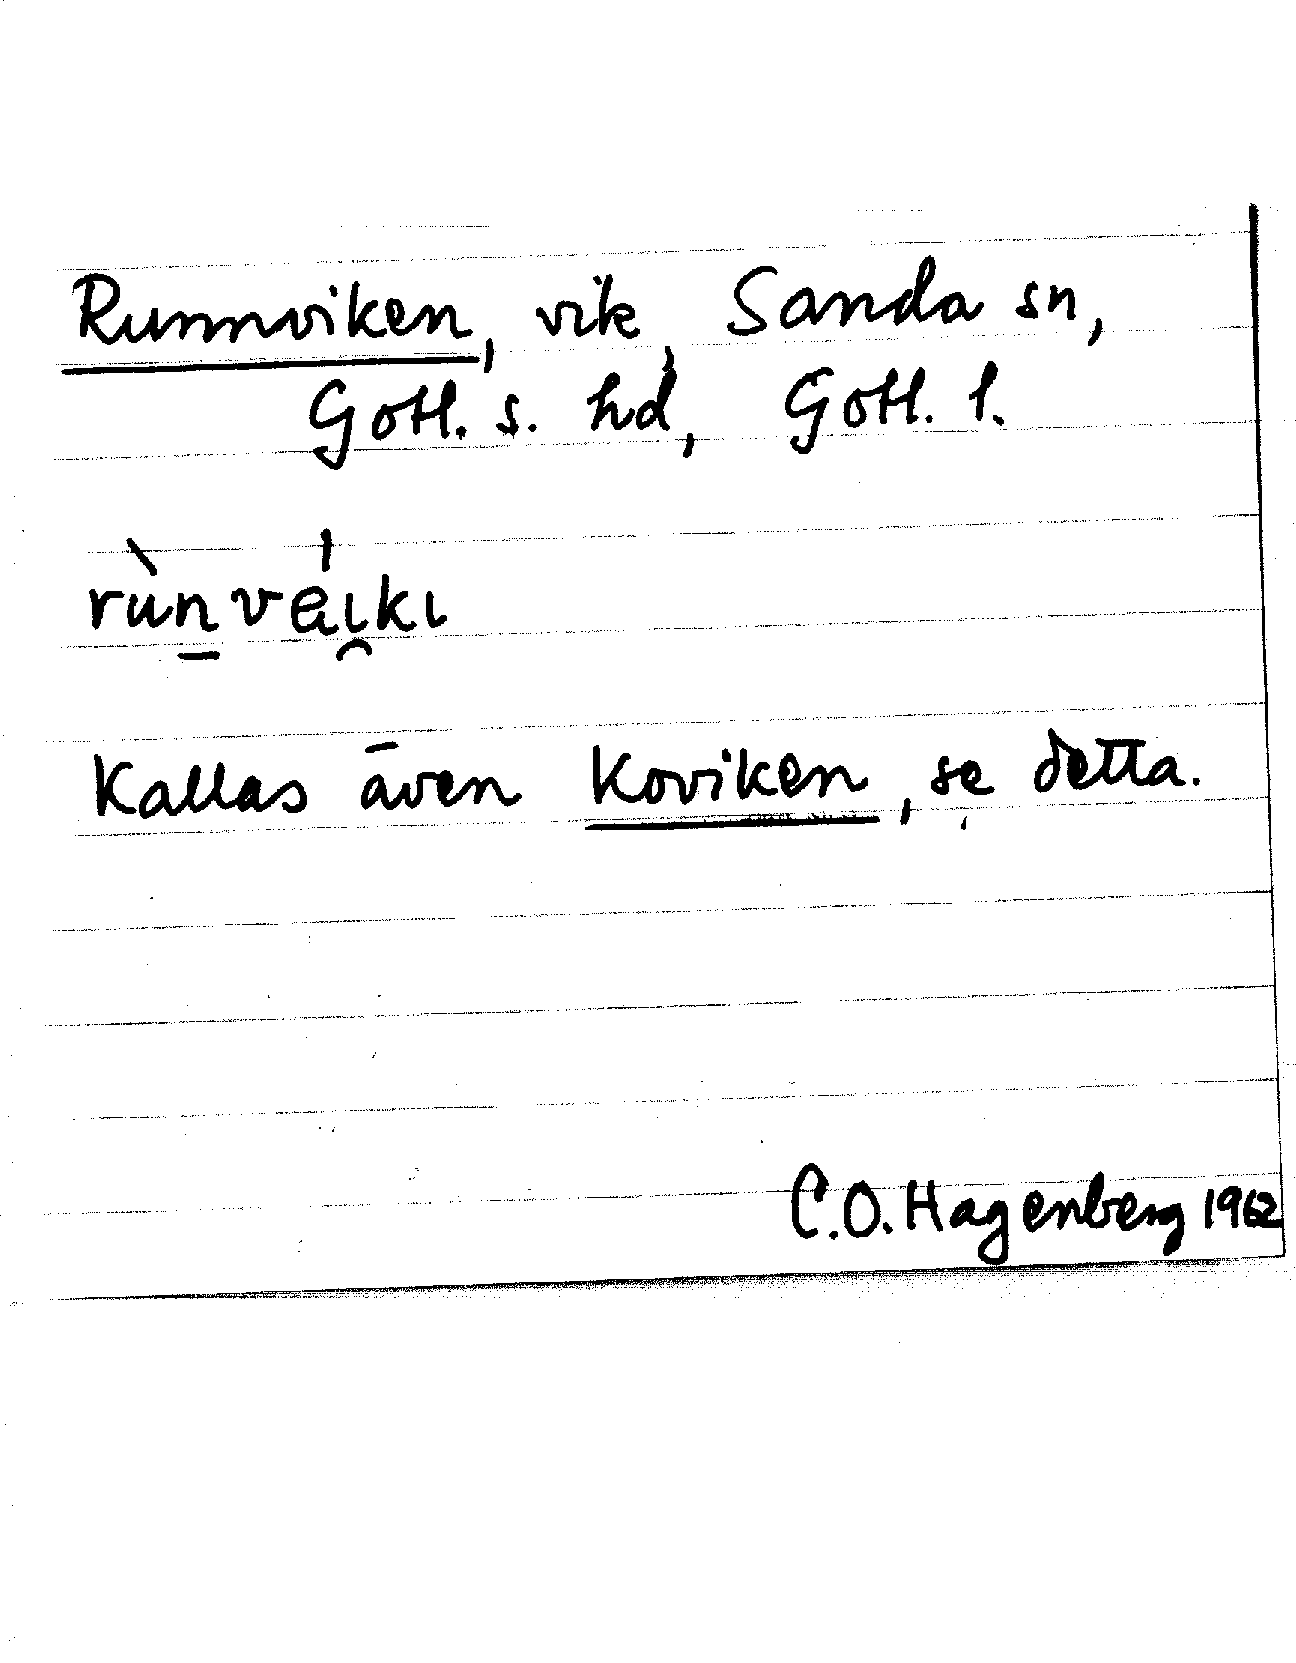 Runnviken, vik, Sanda sn,
Gotl. s. hd, Gotl. l.
rùn̲véι̯kι
Kallas även Koviken, se detta.
C.O. Hagenberg 1962